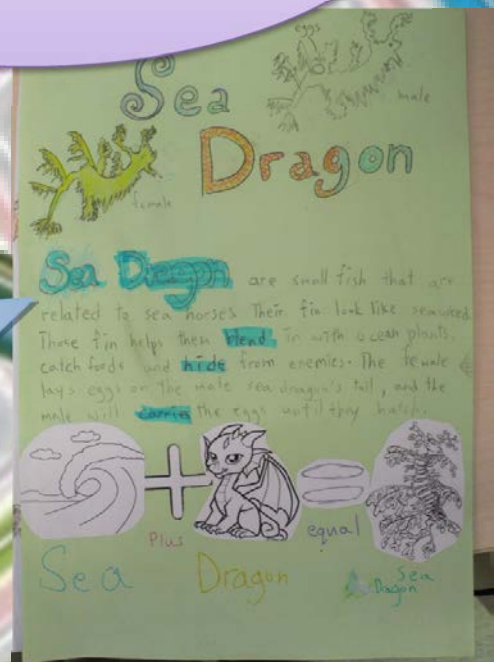 eggs
Sea
male
Dragon
female
Sea Dragon are small fish that are
related to sea horses Their fin look like seaweed.
Those fin helps them blend in with ocean plants,
catch foods and hide from enemies. The female
lays eggs on the male sea dragon's tail, and the
male will carries the eggs until they hatch.
Plus
equal
Sea
Dragon
Sea
Dragon